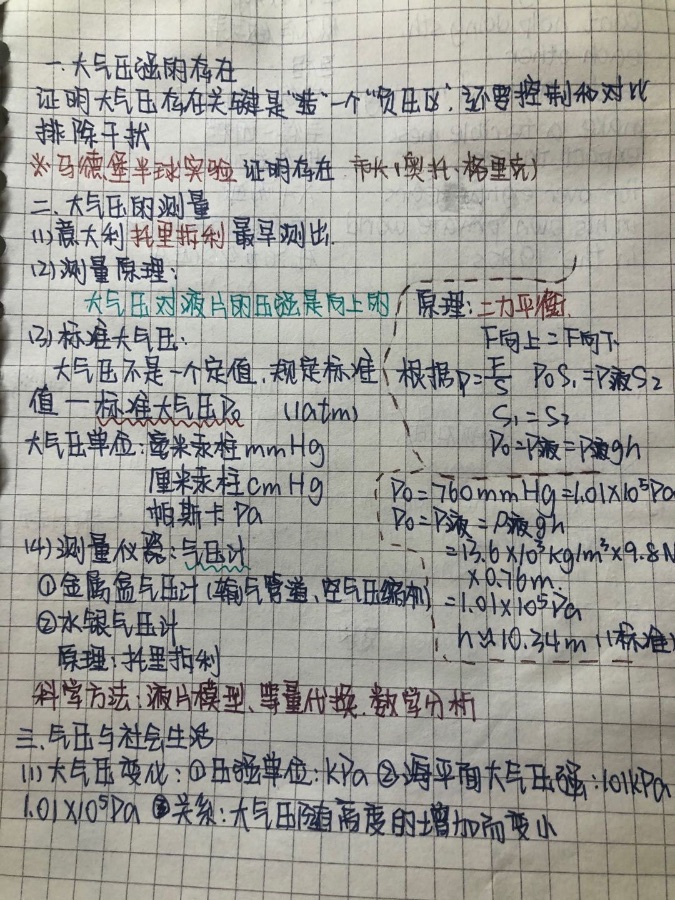 一.大气压强的存在
证明大气压存在关键是"造"一个"负压区",还要控制和对比
排除干扰
※马德堡半球实验 证明存在 市长(奥托·格里克)
二.大气压的测量
(1)意大利托里拆利最早测出.
(2)测量原理:
大气压对液片的压强是向上的
原理:二力平衡.
F向上=F向下
根据P=F/S P0S1=P液S2
S1=S2
P0=P液=ρ液gh
(3)标准大气压:
大气压不是一个定值,规定标准
值—标准大气压P0 (1atm)
大气压单位:毫米汞柱mmHg
厘米汞柱cmHg
帕斯卡Pa
P0=760mmHg=1.01×10⁵Pa
P0=P液=ρ液gh
=13.6×10³kg/m³×9.8N
×0.76m.
=1.01×10⁵Pa
h≈10.34m(标准)
(4)测量仪器:气压计
①金属盒气压计(输气管道、空气压缩机)
②水银气压计
原理:托里拆利
科学方法:液片模型、等量代换.数学分析
三.气压与社会生活
(1)大气压变化:①压强单位:kPa ②海平面大气压强:101kPa
1.01×10⁵Pa ③关系:大气压随高度的增加而变小